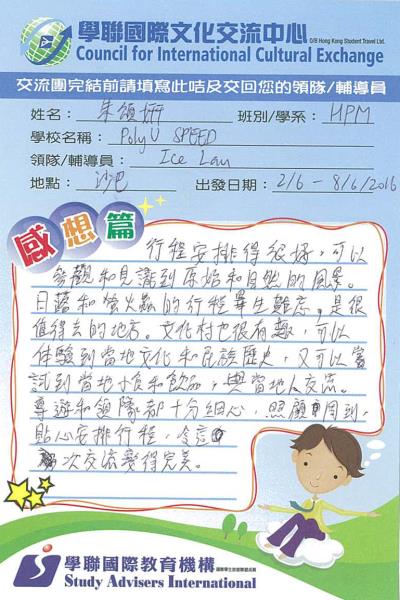 學聯國際文化交流中心
D/B Hong Kong Student Travel Ltd.
Council for International Cultural Exchange
交流團完結前請填寫此咭及交回您的領隊/輔導員
姓名: 朱頌妍 班別/學系: HPM
學校名稱: PolyU SPEED
領隊/輔導員: Ice Lau
地點: 沙巴 出發日期: 2/6 - 8/6/2016
感想篇
行程安排得很好,可以
參觀和見識到原始和自然的風景。
日落和螢火蟲的行程畢生難忘,是很
值得去的地方。文化村也很有趣,可以
体驗到當地文化和民族歷史,又可以嘗
試到當地小食和飲品,與當地人交流。
導遊和領隊都十分細心,照顧周到,
貼心安排行程,令這
次交流變得完美。
學聯國際教育機構
Study Advisers International